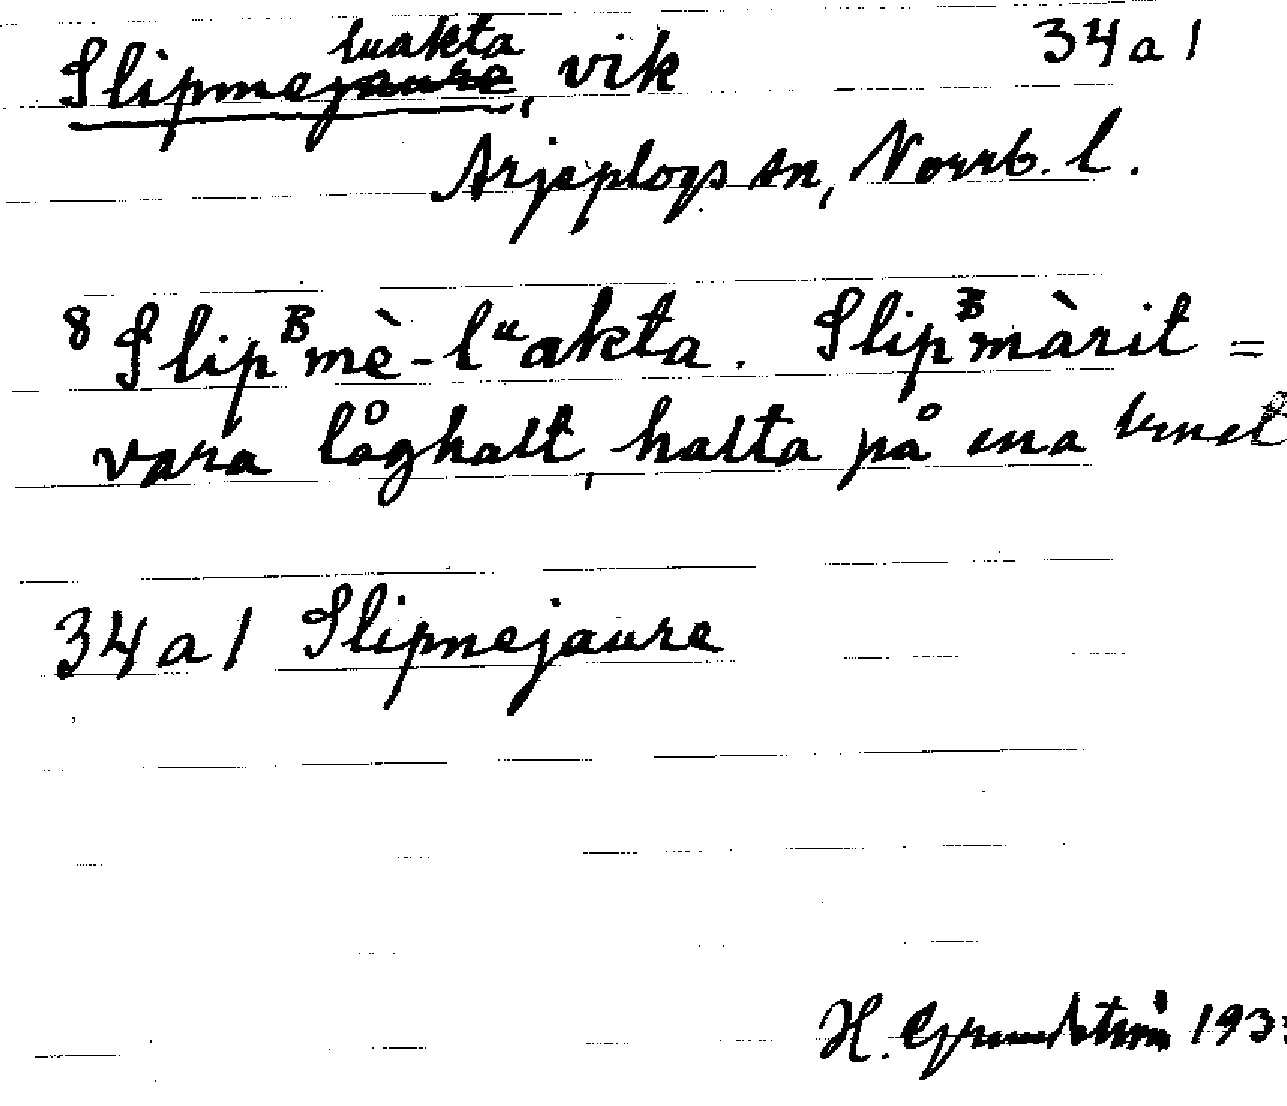 Slipmejaure luakta, vik 34 a 1
Arjeplogs sn, Norrb. l.
8 Slipᴮmè-lᵘakta. Slipᴮmàrit =
vara låghalt, halta på ena benet
34 a 1 Slipmejaure
H. Grundström 193